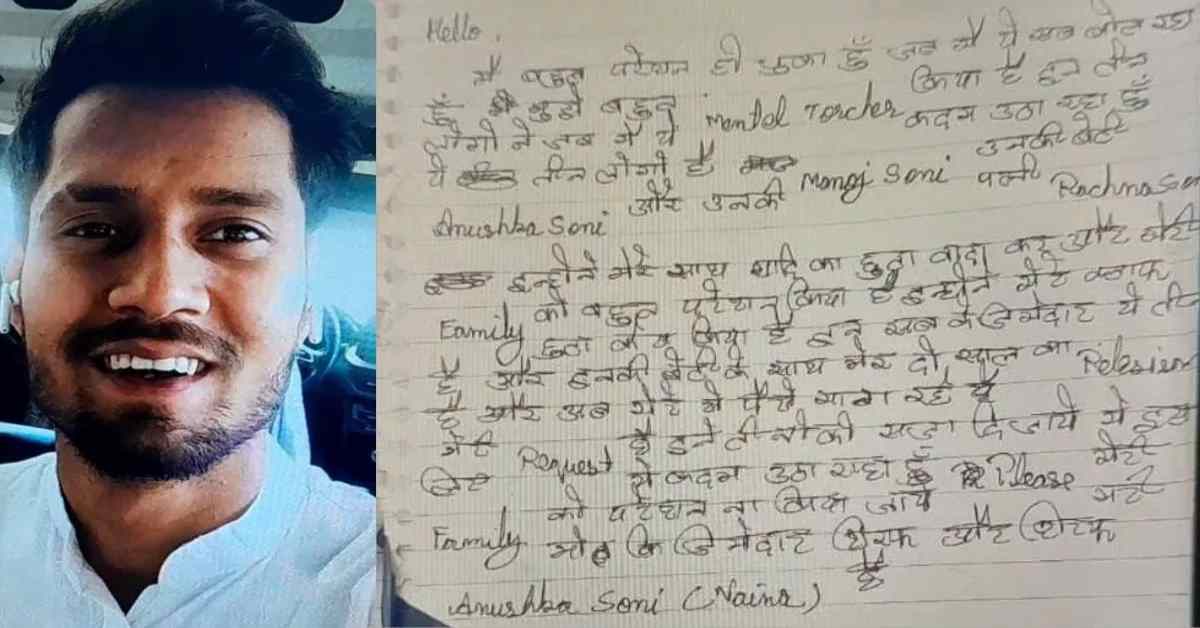 Hello,
मै बहुत परेशान हो चुका हुँ जब मै ये सब बोल रहा
हुँ मुझे बहुत Mental Torcher किया है इन तीन
लोगो ने जब मै ये कदम उठा रहा हुँ
ये तीन लोगो है Manoj Soni उनकी बेटी
Anushka Soni और उनकी पत्नी Rachna Son
इन्होने मेरे साथ शादि का झुठा वादा कर और मेरी
Family को बहुत परेशान किया है इन्होने मेरे खलाफ
झुठा किया है इन सब के जिमेदार ये ती
है और इनकी बेटी के साथ मेर दो साल का Relesien
है और अब मेरे से पैसे माग रहे है
मेरी Request है इन तीनो को सजा दि जाये मे इस
लिए ये कदम उठा राहा हुँ Please मेरी
Family को परेशान ना किया जाये मेरी
मोत कि जिमेदार सिरफ और सिरफ
Anushka Soni (Naina) है